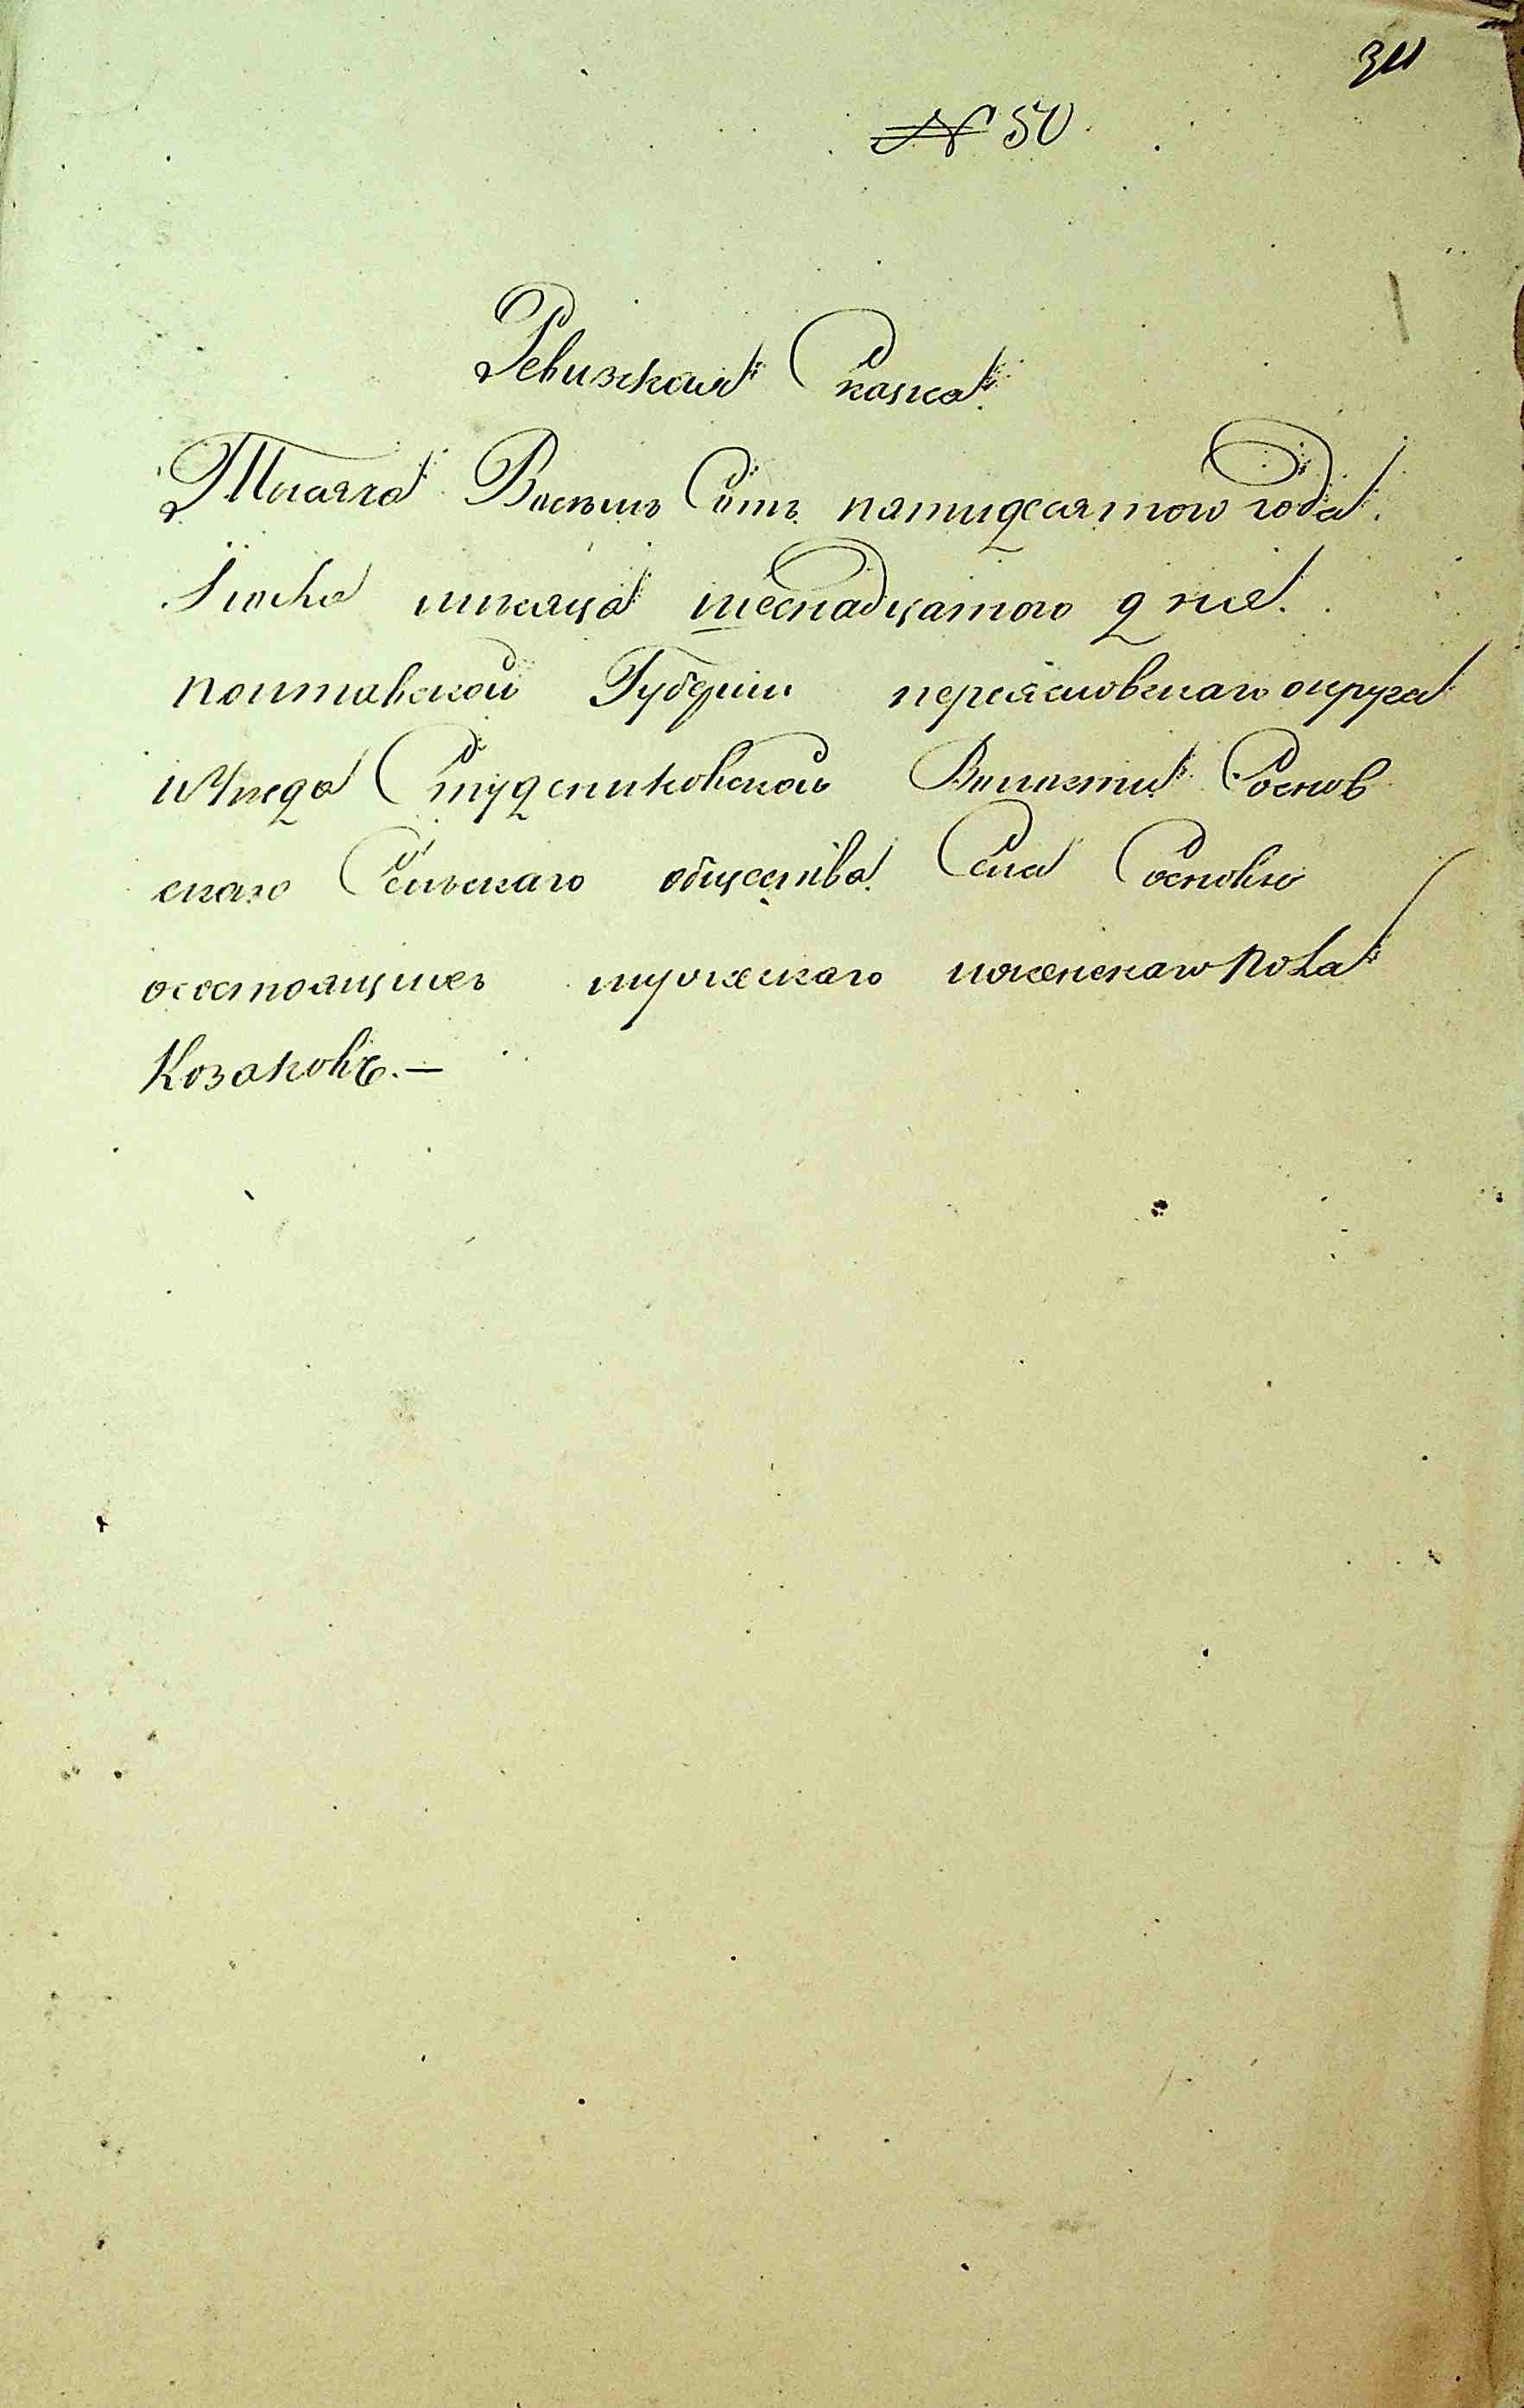 311
№ 50
Ревизская Сказка
Тысяча Восемь Сотъ пятидесятого года
Іюня месяца шеснадцатого дня.
полтавской Губерніи переясловскаго округа
и Уезда Студениковской Волости Соснов
скаго Сельскаго общества Села Сосновки
осостоящихъ мужескаго иженскаго пола
Козаковъ.—